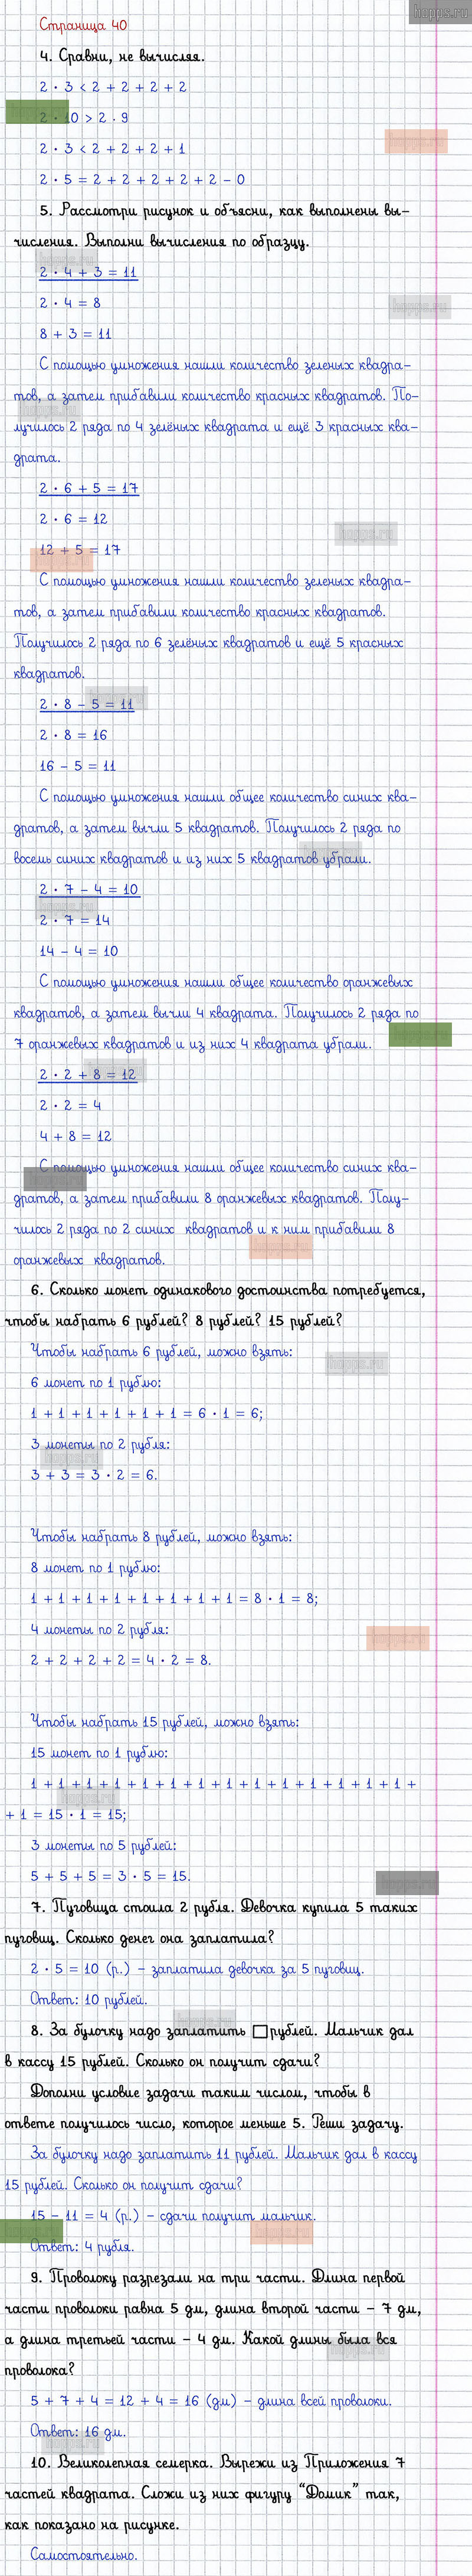 hopps.ru
Страница 40
4. Сравни, не вычисляя.
2 · 3 < 2 + 2 + 2 + 2
2 · 10 > 2 · 9
2 · 3 < 2 + 2 + 2 + 1
2 · 5 = 2 + 2 + 2 + 2 + 2 – 0
5. Рассмотри рисунок и объясни, как выполнены вы–
числения. Выполни вычисления по образцу.
2 · 4 + 3 = 11
2 · 4 = 8
8 + 3 = 11
С помощью умножения нашли количество зеленых квадра–
тов, а затем прибавили количество красных квадратов. По–
лучилось 2 ряда по 4 зелёных квадрата и ещё 3 красных ква–
драта.
2 · 6 + 5 = 17
2 · 6 = 12
12 + 5 = 17
С помощью умножения нашли количество зеленых квадра–
тов, а затем прибавили количество красных квадратов.
Получилось 2 ряда по 6 зелёных квадратов и ещё 5 красных
квадратов.
2 · 8 – 5 = 11
2 · 8 = 16
16 – 5 = 11
С помощью умножения нашли общее количество синих ква–
дратов, а затем вычли 5 квадратов. Получилось 2 ряда по
восемь синих квадратов и из них 5 квадратов убрали.
2 · 7 – 4 = 10
2 · 7 = 14
14 – 4 = 10
С помощью умножения нашли общее количество оранжевых
квадратов, а затем вычли 4 квадрата. Получилось 2 ряда по
7 оранжевых квадратов и из них 4 квадрата убрали.
2 · 2 + 8 = 12
2 · 2 = 4
4 + 8 = 12
С помощью умножения нашли общее количество синих ква–
дратов, а затем прибавили 8 оранжевых квадратов. Полу–
чилось 2 ряда по 2 синих квадратов и к ним прибавили 8
оранжевых квадратов.
6. Сколько монет одинакового достоинства потребуется,
чтобы набрать 6 рублей? 8 рублей? 15 рублей?
Чтобы набрать 6 рублей, можно взять:
6 монет по 1 рублю:
1 + 1 + 1 + 1 + 1 + 1 = 6 · 1 = 6;
3 монеты по 2 рубля:
3 + 3 = 3 · 2 = 6.
Чтобы набрать 8 рублей, можно взять:
8 монет по 1 рублю:
1 + 1 + 1 + 1 + 1 + 1 + 1 + 1 = 8 · 1 = 8;
4 монеты по 2 рубля:
2 + 2 + 2 + 2 = 4 · 2 = 8.
Чтобы набрать 15 рублей, можно взять:
15 монет по 1 рублю:
1 + 1 + 1 + 1 + 1 + 1 + 1 + 1 + 1 + 1 + 1 + 1 + 1 + 1 +
+ 1 = 15 · 1 = 15;
3 монеты по 5 рублей:
5 + 5 + 5 = 3 · 5 = 15.
7. Пуговица стоила 2 рубля. Девочка купила 5 таких
пуговиц. Сколько денег она заплатила?
2 · 5 = 10 (р.) – заплатила девочка за 5 пуговиц.
Ответ: 10 рублей.
8. За булочку надо заплатить □ рублей. Мальчик дал
в кассу 15 рублей. Сколько он получит сдачи?
Дополни условие задачи таким числом, чтобы в
ответе получилось число, которое меньше 5. Реши задачу.
За булочку надо заплатить 11 рублей. Мальчик дал в кассу
15 рублей. Сколько он получит сдачи?
15 – 11 = 4 (р.) – сдачи получит мальчик.
Ответ: 4 рубля.
9. Проволоку разрезали на три части. Длина первой
части проволоки равна 5 дм, длина второй части – 7 дм,
а длина третьей части – 4 дм. Какой длины была вся
проволока?
5 + 7 + 4 = 12 + 4 = 16 (дм) – длина всей проволоки.
Ответ: 16 дм.
10. Великолепная семерка. Вырежи из Приложения 7
частей квадрата. Сложи из них фигуру “Домик” так,
как показано на рисунке.
Самостоятельно.